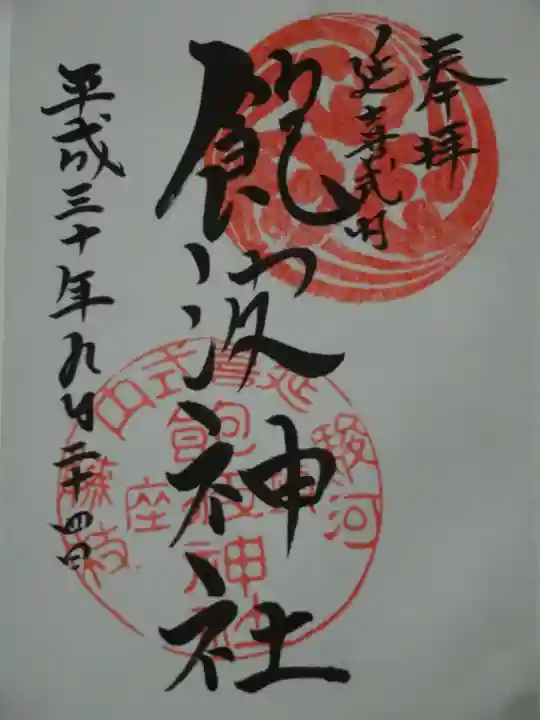 奉拝
延喜式内
飽波神社
平成三十年九月二十四日
延喜式内
駿河
飽波神社
座
藤枝